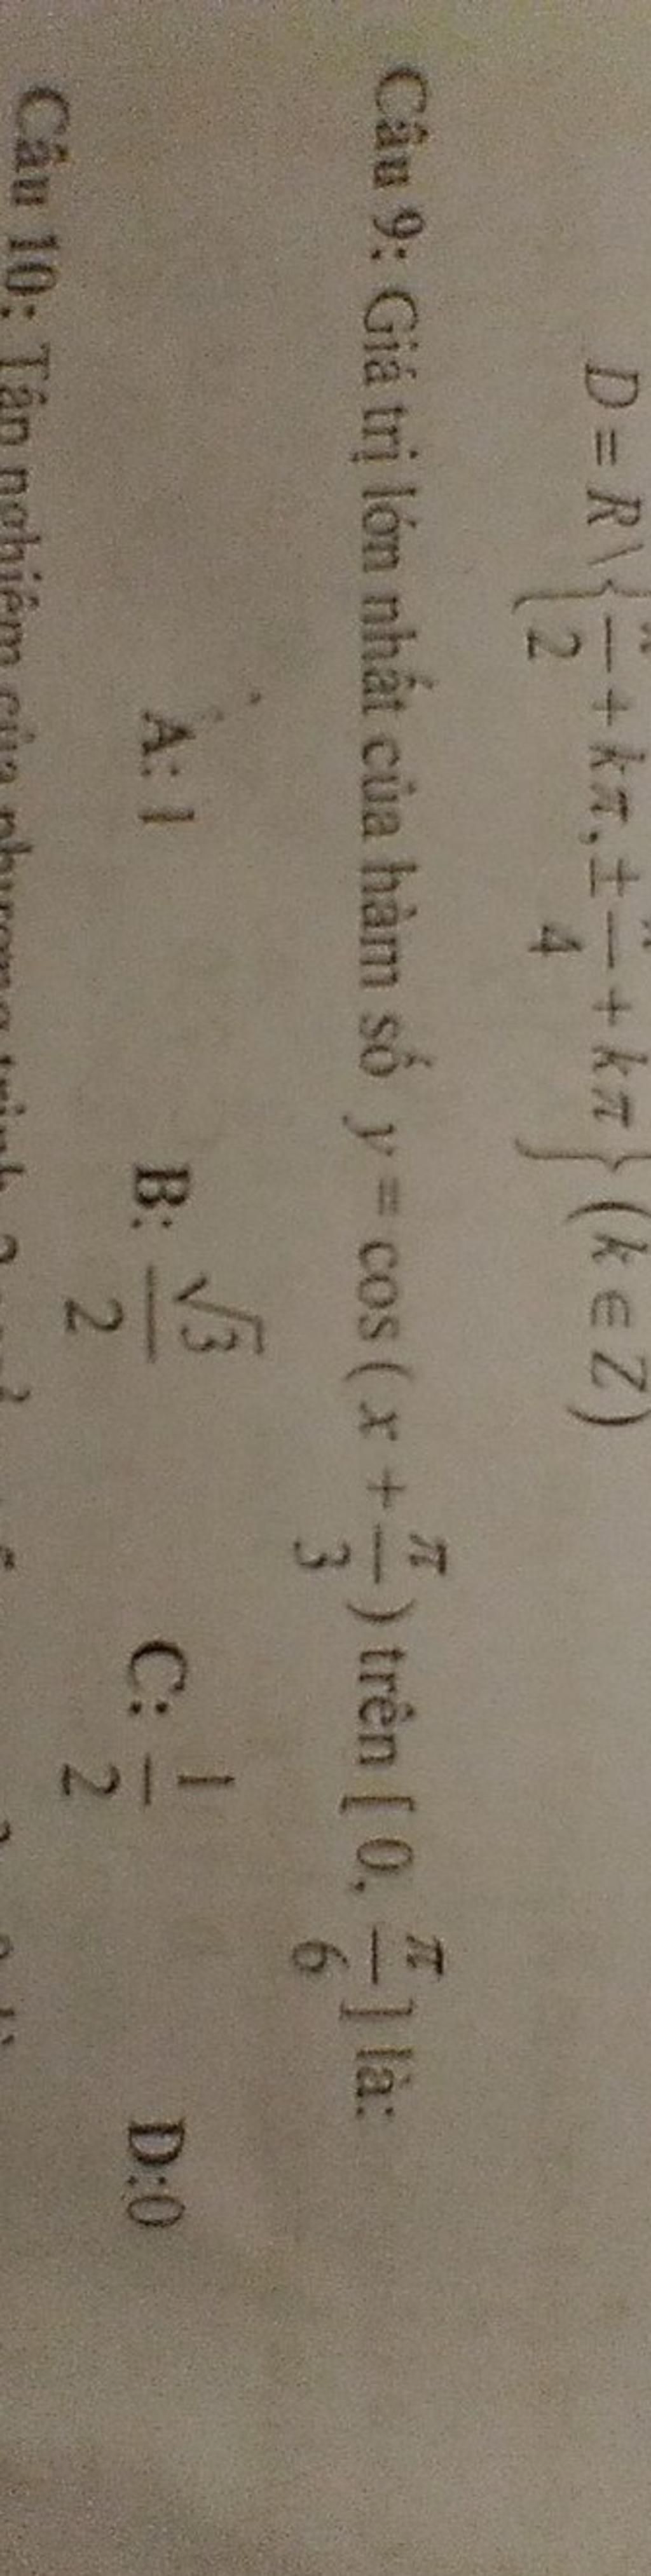 D = R \ { π/2 + kπ, ± π/4 + kπ } (k ∈ Z)
Câu 9: Giá trị lớn nhất của hàm số y = cos( x + π/3 ) trên [ 0, π/6 ] là:
A: 1 B: √3/2 C: 1/2 D:0
Câu 10: Tập nghiệm của phương trình